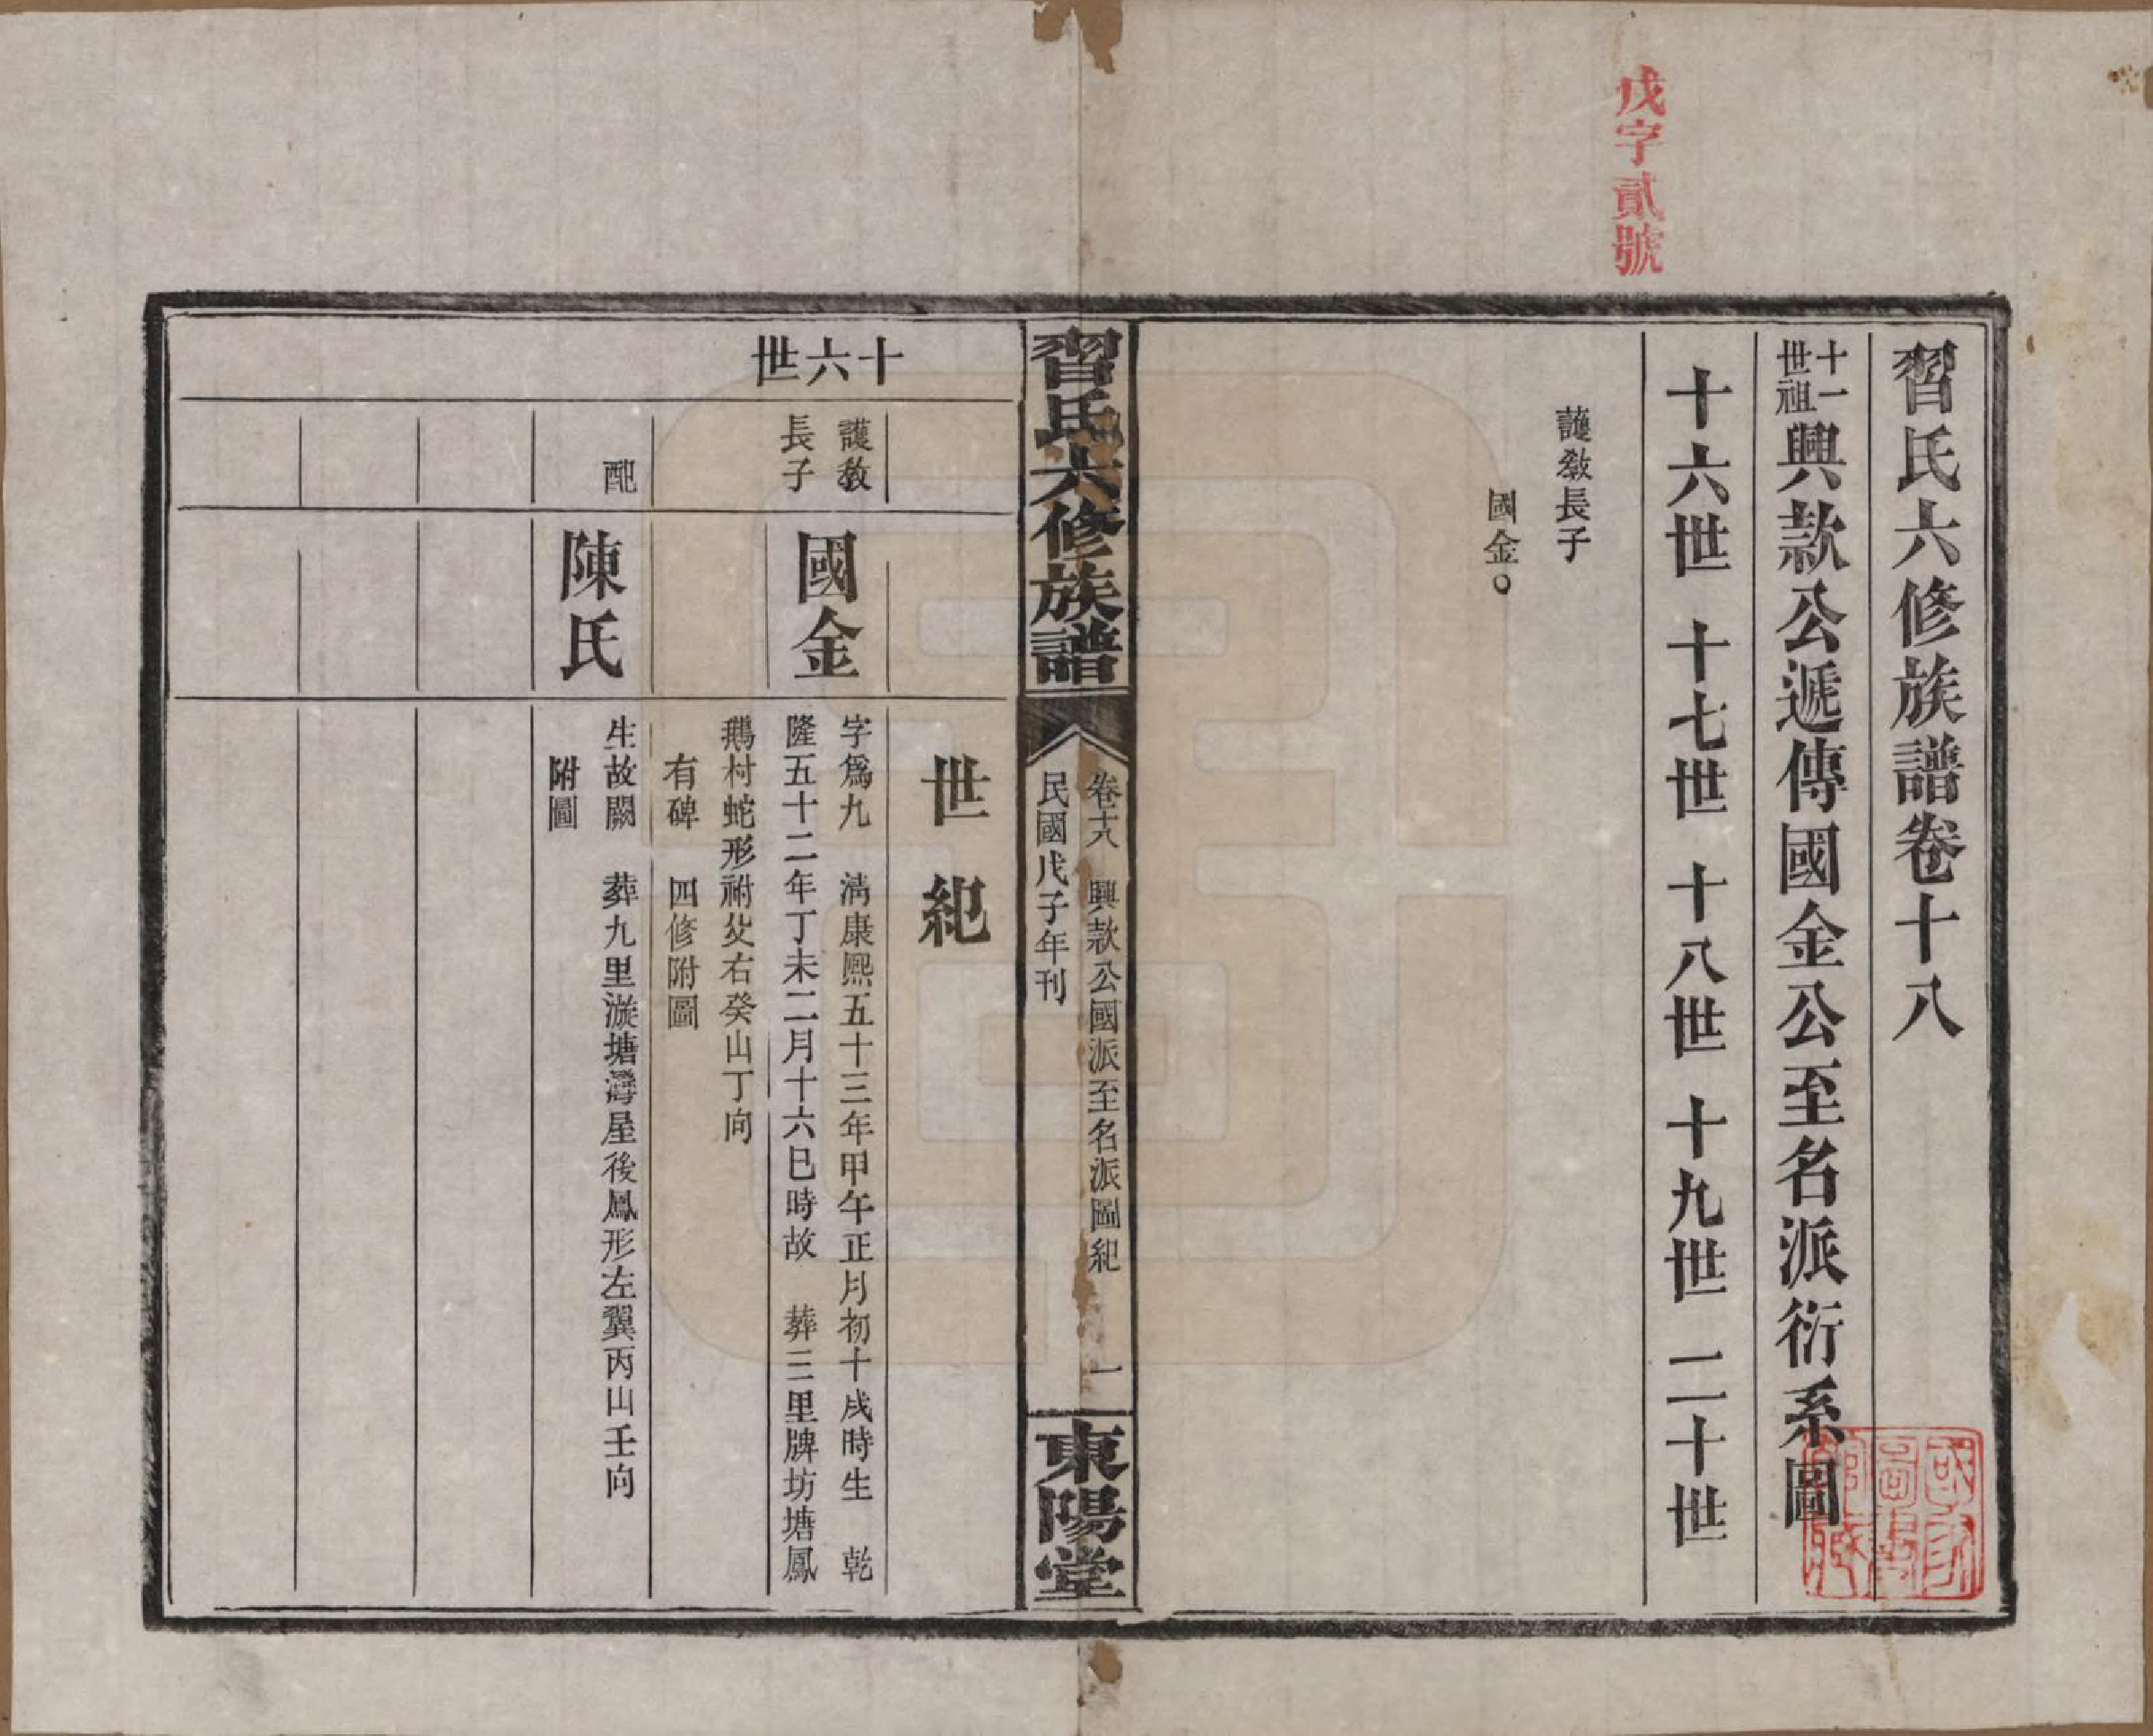 戊字貳號
習氏六修族譜卷十八
十一世祖興款公遞傳國金公至名派衍系圖
十六世 十七世 十八世 十九世 二十世
護敎長子
國金○
習氏六修族譜
卷十八 興款公國派至名派圖紀 一
民國戊子年刊
東陽堂
世紀
十六世
護敎
長子
國金
字爲九 淸康熙五十三年甲午正月初十戌時生 乾
隆五十二年丁未二月十六巳時故 葬三里牌坊塘鳳
鵝村蛇形祔父右癸山丁向
有碑 四修附圖
配
陳氏
生故闕 葬九里漩塘灣屋後鳳形左翼丙山壬向
附圖
國家圖書館藏